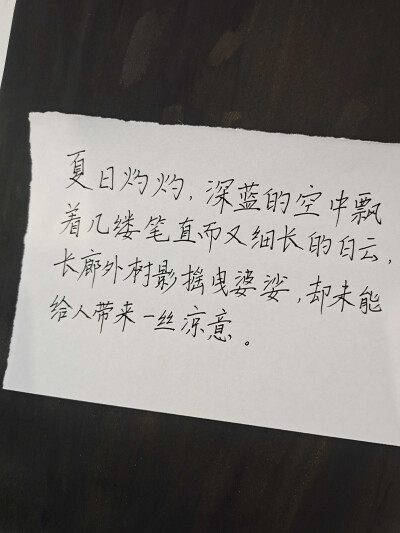 夏日灼灼，深蓝的空中飘
着几缕笔直而又细长的白云，
长廊外树影摇曳婆娑，却未能
给人带来一丝凉意。